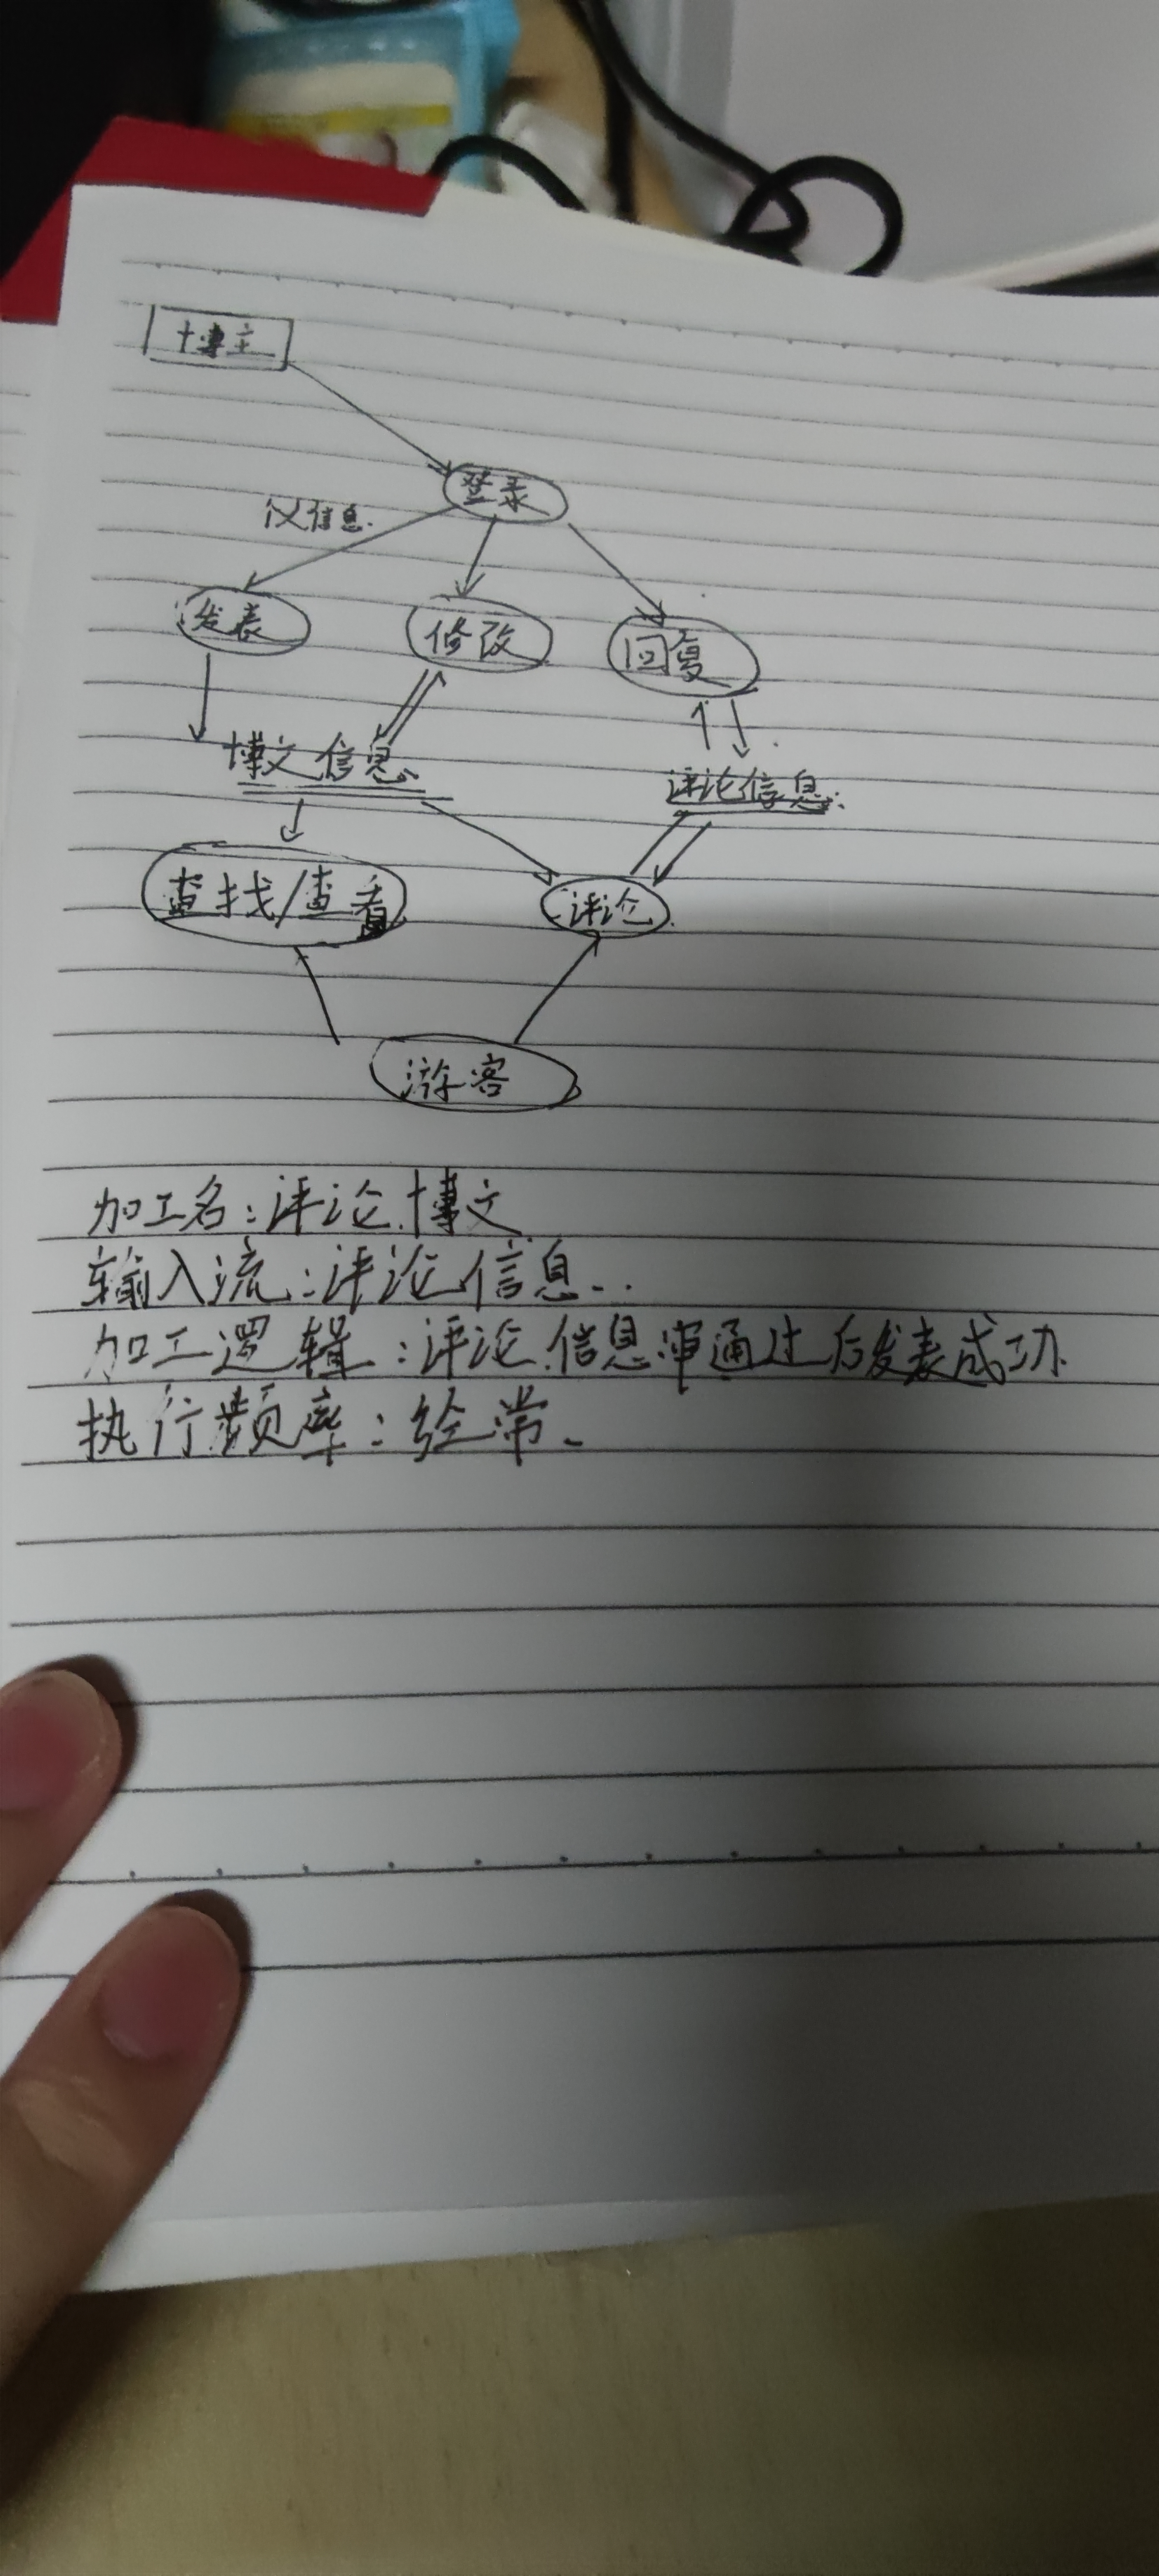 博主
登录
仪信息.
发表
修改
回复
博文信息
评论信息:
查找/查看
评论
游客
加工名:评论博文
输入流:评论信息..
加工逻辑:评论信息审通过后发表成功
执行频率:经常.